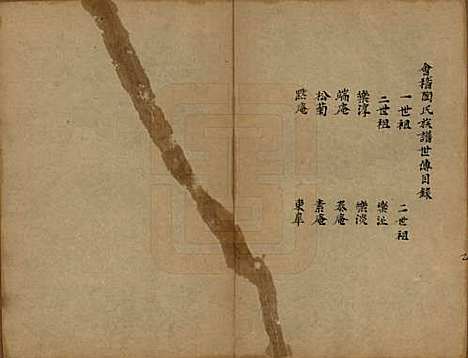 會稽陶氏族譜世傳目錄
一世祖 二世祖
二世祖 樂沚
樂淳 樂淡
端庵 慕庵
松菊 素庵
點庵 東皋